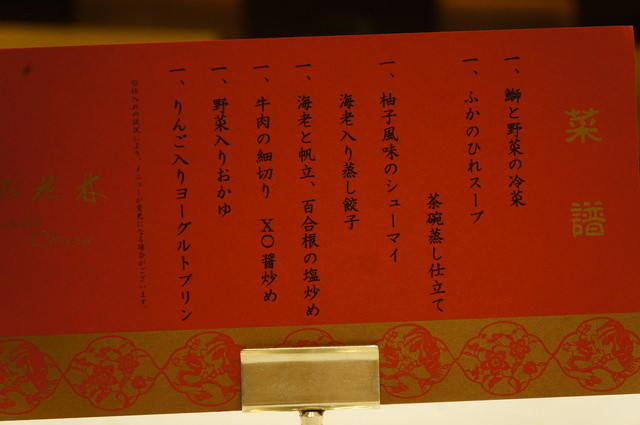 菜譜
一、鰤と野菜の冷菜
一、ふかのひれスープ
茶碗蒸し仕立て
一、柚子風味のシューマイ
海老入り蒸し餃子
一、海老と帆立、百合根の塩炒め
一、牛肉の細切り XO醤炒め
一、野菜入りおかゆ
一、りんご入りヨーグルトプリン
仕入れの状況により、メニューが変更になる場合がございます。